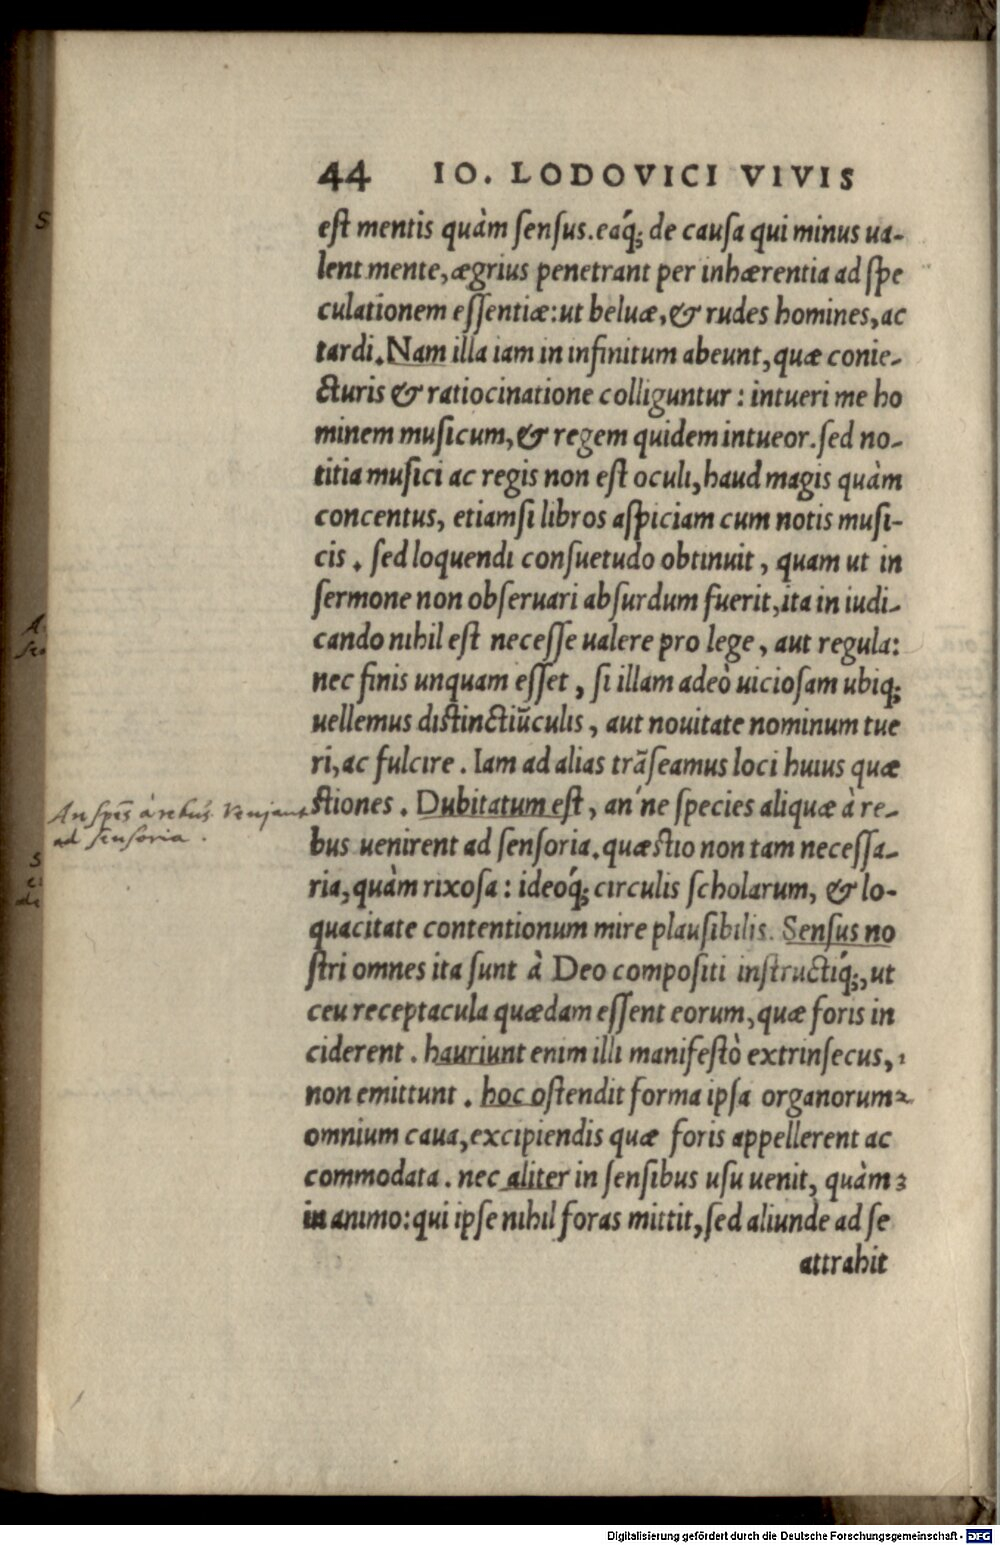 44 IO. LODOVICI VIVIS
est mentis quàm sensus. eáq; de causa qui minus ua-
lent mente, ægrius penetrant per inhærentia ad spe
culationem essentiæ: ut beluæ, & rudes homines, ac
tardi. Nam illa iam in infinitum abeunt, quæ conie-
cturis & ratiocinatione colliguntur: intueri me ho
minem musicum, & regem quidem intueor. sed no-
titia musici ac regis non est oculi, haud magis quàm
concentus, etiamsi libros aspiciam cum notis musi-
cis. sed loquendi consuetudo obtinuit, quam ut in
sermone non obseruari absurdum fuerit, ita in iudi-
cando nihil est necesse ualere pro lege, aut regula:
nec finis unquam esset, si illam adeò uiciosam ubiq;
uellemus distinctiũculis, aut nouitate nominum tue
ri, ac fulcire. Iam ad alias trãseamus loci huius quæ
stiones. Dubitatum est, an´ne species aliquæ à re-
bus uenirent ad sensoria. quæstio non tam necessa-
ria, quàm rixosa: ideóq; circulis scholarum, & lo-
quacitate contentionum mire plausibilis. Sensus no
stri omnes ita sunt à Deo compositi instructíq;, ut
ceu receptacula quædam essent eorum, quæ foris in
ciderent. hauriunt enim illi manifestò extrinsecus, 1
non emittunt. hoc ostendit forma ipsa organorum 2
omnium caua, excipiendis quæ foris appellerent ac
commodata. nec aliter in sensibus usu uenit, quàm 3
in animo: qui ipse nihil foras mittit, sed aliunde ad se
attrahit
An spēs à rebus veniant
ad sensoria.
Digitalisierung gefördert durch die Deutsche Forschungsgemeinschaft - DFG